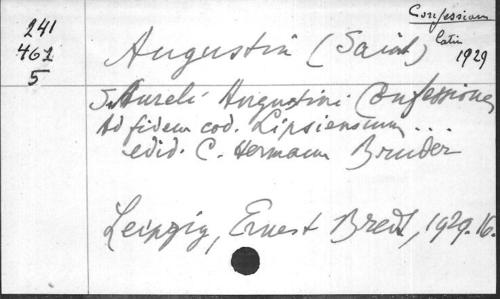 Confessiones
latin
1929
241
462
5
Augustin (Saint)
S. Aureli Augustini Confessiones
Ad fidem cod. Lipsiensium ...
edid. C. Hermann Bruder
Leipzig, Ernest Bredt, 1929. 16.